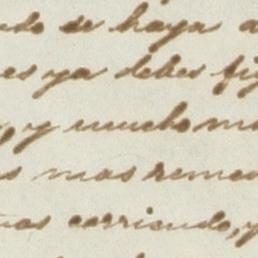 do se haya a
es ya debes fig
y mucho ma
s mas remed
mas corriendo, y